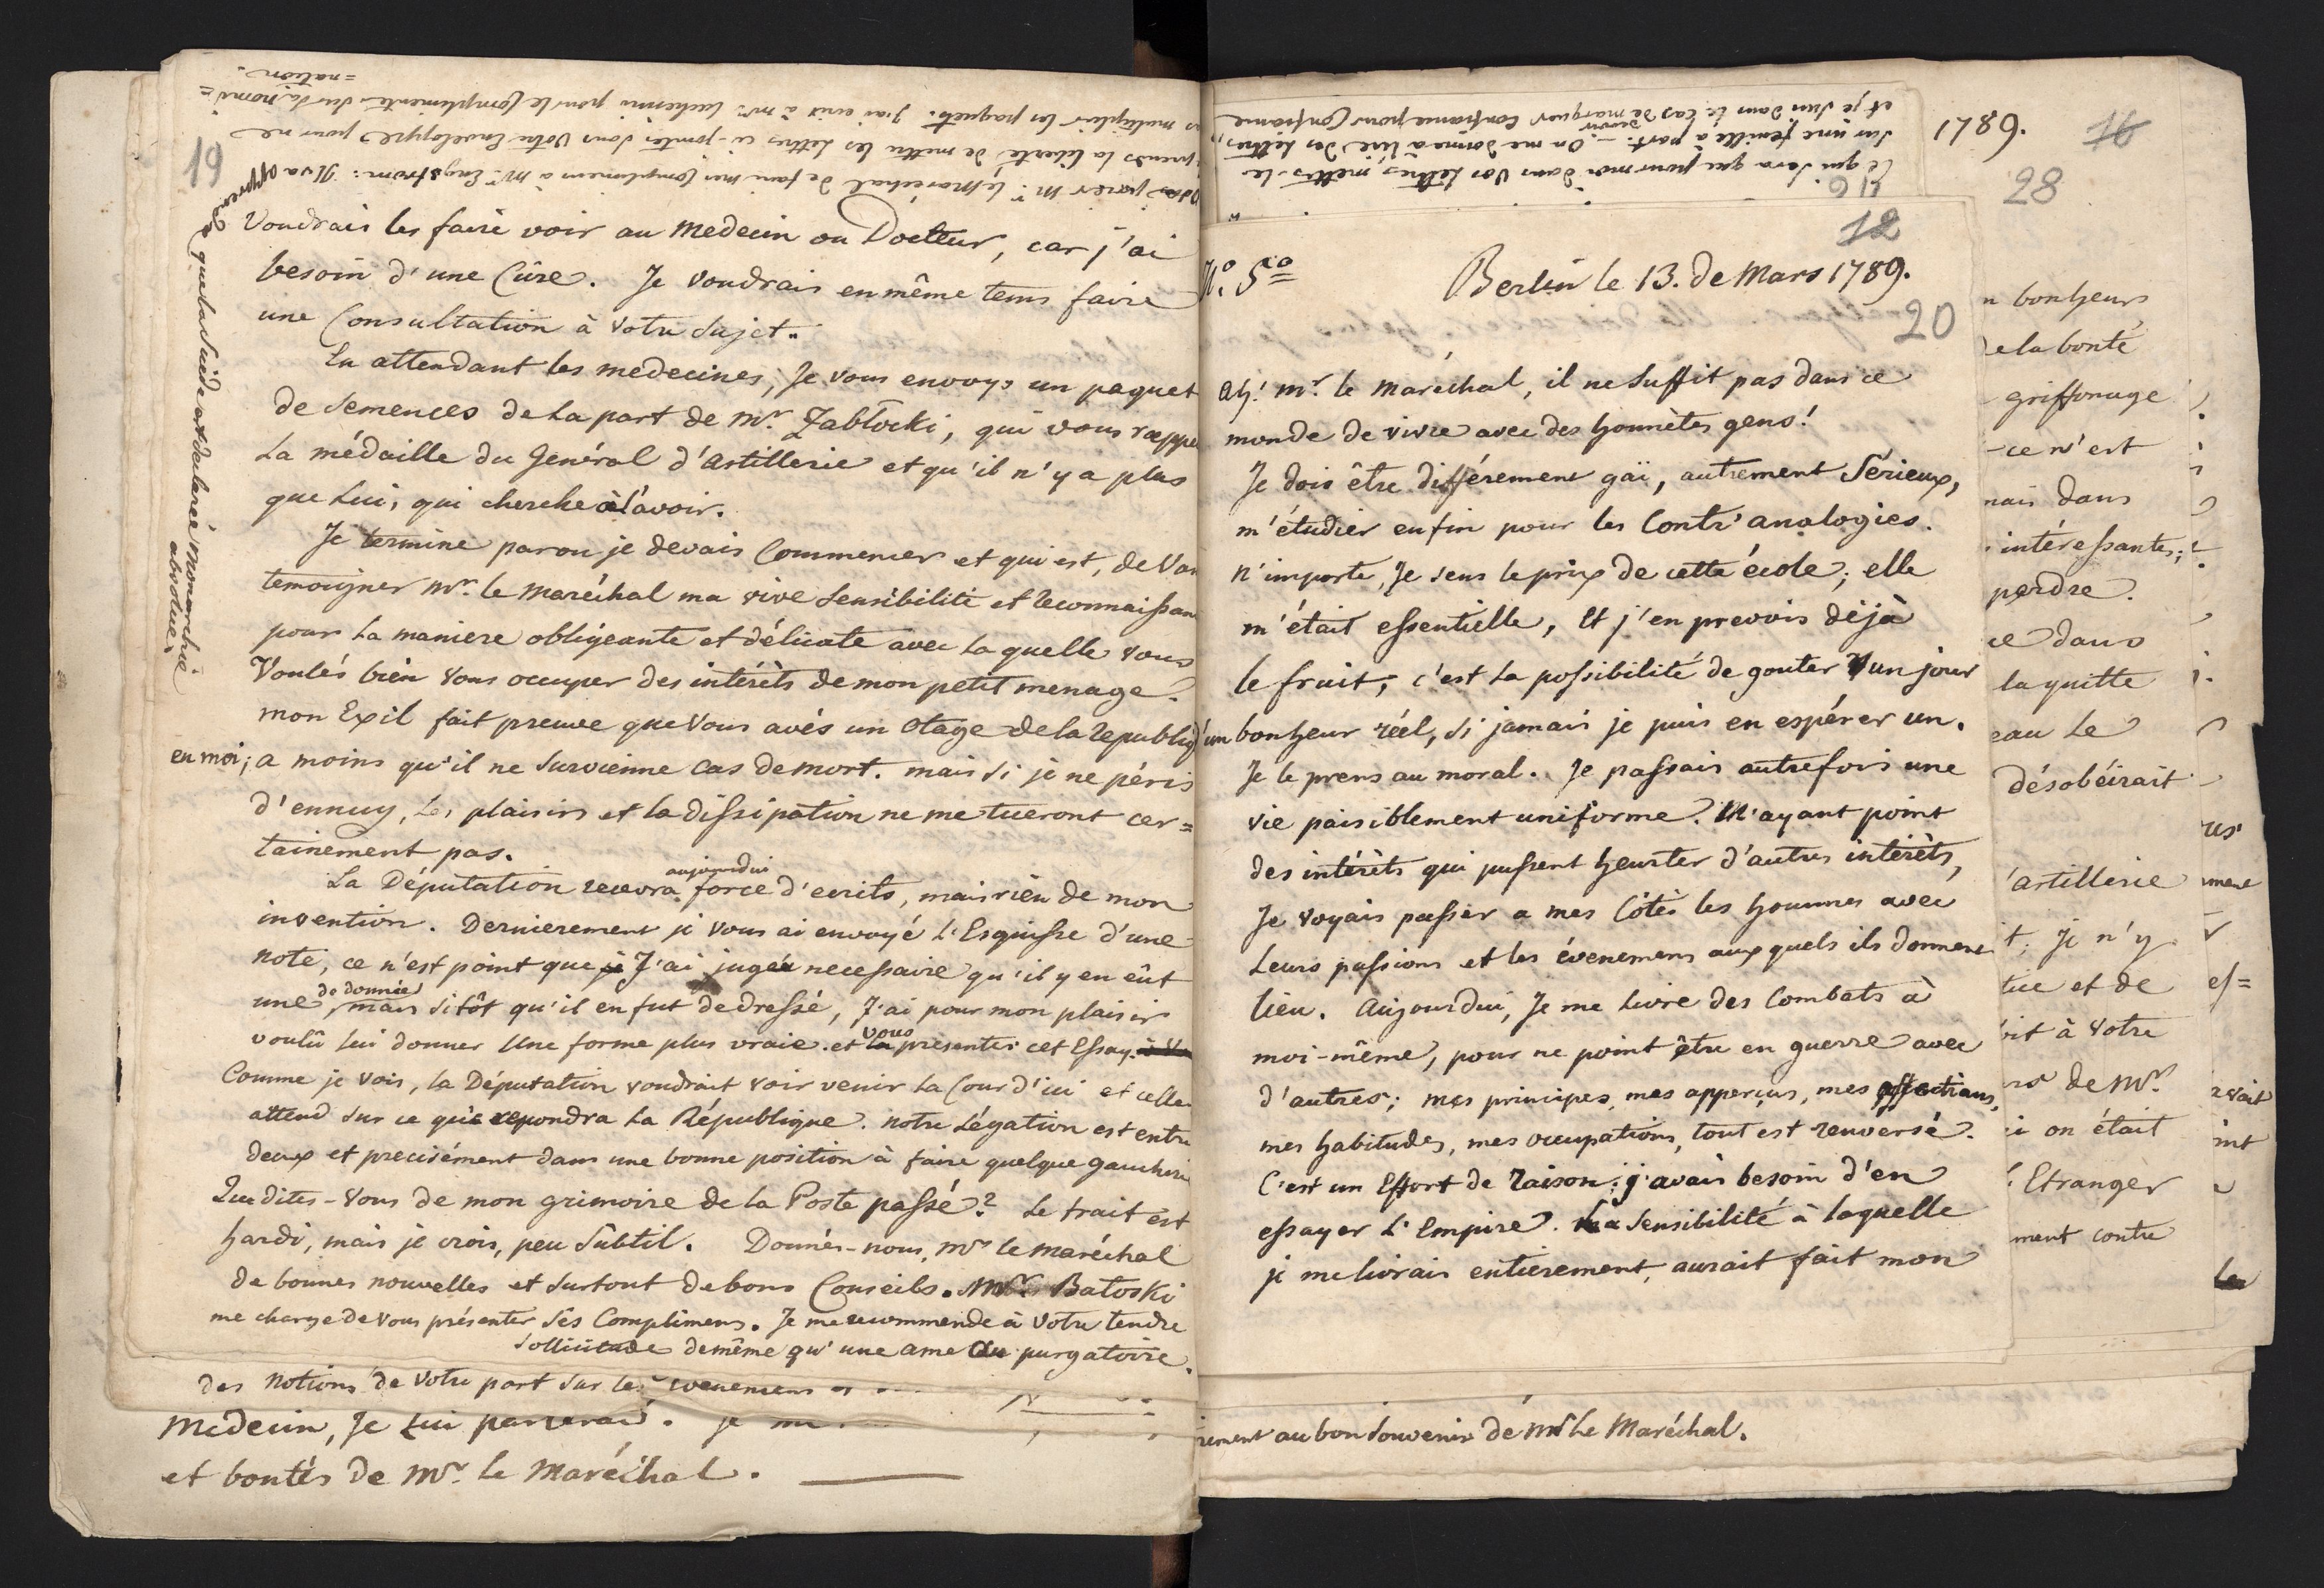 19
Voudrais les faire voir au Medecin ou Docteur, car j'ai
besoin d'une Cûre. Je voudrais en même tems faire
une Consultation à votre sujet..
En attendant les medecines, Je vous envoye un paquet
de semences de la part de Mr. Zabłocki, qui vous rappe
La médaille du Général d'Artillerie et qu'il n'y a plus
que Lui, qui cherche à l'avoir.
Je termine par ou je devais Commencer et qui est, de Vou
temoigner Mr. le Maréchal ma vive sensibilité et reconnaissan
pour la maniere obligeante et délicate avec laquelle vous
Voulés bien vous occuper des intérêts de mon petit menage.
Mon Exil fait preuve que Vous avés un Otage de la Republiq
en moi; a moins qu'il ne survienne cas de mort. mais si je ne péris
d'ennuy, Les plaisirs et la dissipation ne me tueront cer=
tainement pas.
aujourdui
La Députation recevra force d'ecrits, mais rien de mon
invention. Dernierement je vous ai envoyé l'Esquisse d'une
note, ce n'est point que je J'ai jugée necessaire qu'il y en eût
de donnée
une mais sitôt qu'il en fut de dressé, J'ai pour mon plaisir
vous
voulû lui donner Une forme plus vraie. et la presenter cet Essay.
Comme je vois, la Députation voudrait voir venir la Cour d'ici et celle
attend sur ce que repondra la République. notre Légation est entre
deux et precisément dans une bonne position à faire quelque gaucherie
Que dites-vous de mon grimoire de la Poste passé? Le trait est
hardi, mais je crois, peu Subtil. Donnés-nous, Mr le Maréchal
de bonnes nouvelles et surtout de bons Conseils. Mr. Batoski
me charge de vous présenter ses Complimens. Je me recommende à votre tendre
sollicitude de même qu'une ame du purgatoire.
apprend que la Suède est declarée Monarchie
absolue.
prier Mr. le Maréchal de faire mes Complimens à Mr. Engström: Il va
prends la liberté de mettre les Lettres ci-jointes sous Votre Enveloppe pour ne
multiplier les paquets. J'ai ecrit à Mr. Luchesini pour le Complimenter sur sa nomi=
=nation.
des Notions de votre part sur les evenemens
Medecin, Je lui parlerai. je me
et bontés de Mr. le Maréchal.
1789.
16
28
Ce qui sera que pour moi dans Vos Lettres, mettés-le
sur une feuille à part. - On me donne à lire des Lettres,
devoir
et je suis dans le cas de marquer Confiance pour Confiance
12
No. 5o=
Berlin le 13. de Mars 1789.
20
Ah! Mr. le Maréchal, il ne suffit pas dans ce
monde de vivre avec des honnêtes gens!
Je dois être différement gaï, autrement Sérieux,
m'étudier enfin pour les Contr'analogies.
N'importe, Je sens le prix de cette école; elle
m'était essentielle, Et j'en prevois déjà
le fruit; c'est la possibilité de gouter un jour
d'un bonheur réel, si jamais je puis en espérer un.
Je le prens au moral. Je passais autrefois une
vie paisiblement uniforme. N'ayant point
des intérêts qui pussent heurter d'autres intérêts,
Je voyais passer a mes Côtés les hommes avec
Leurs passions et les évenemens aux quels ils donnent
lieu. Aujourdui, Je me livre des Combats à
moi-même, pour ne point être en guerre avec
d'autres; mes principes, mes apperçus, mes affections,
mes habitudes, mes occupations, tout est renversé.
C'est un Effort de Raison; j'avais besoin d'en
essayer L'Empire. La Sensibilité à laquelle
je me livrais entierement, aurait fait mon
n bonheur
de la bonté
griffonage
-ce n'est
mais dans
intéressantes;
perdre.
ce dans
la quitte
eau Le
désobéirait
'artillerie
t; Je n'y
tue et de
oit à votre
de Mr.
i on était
Etranger
ment contre
rement au bon souvenir de Mr Le Maréchal.